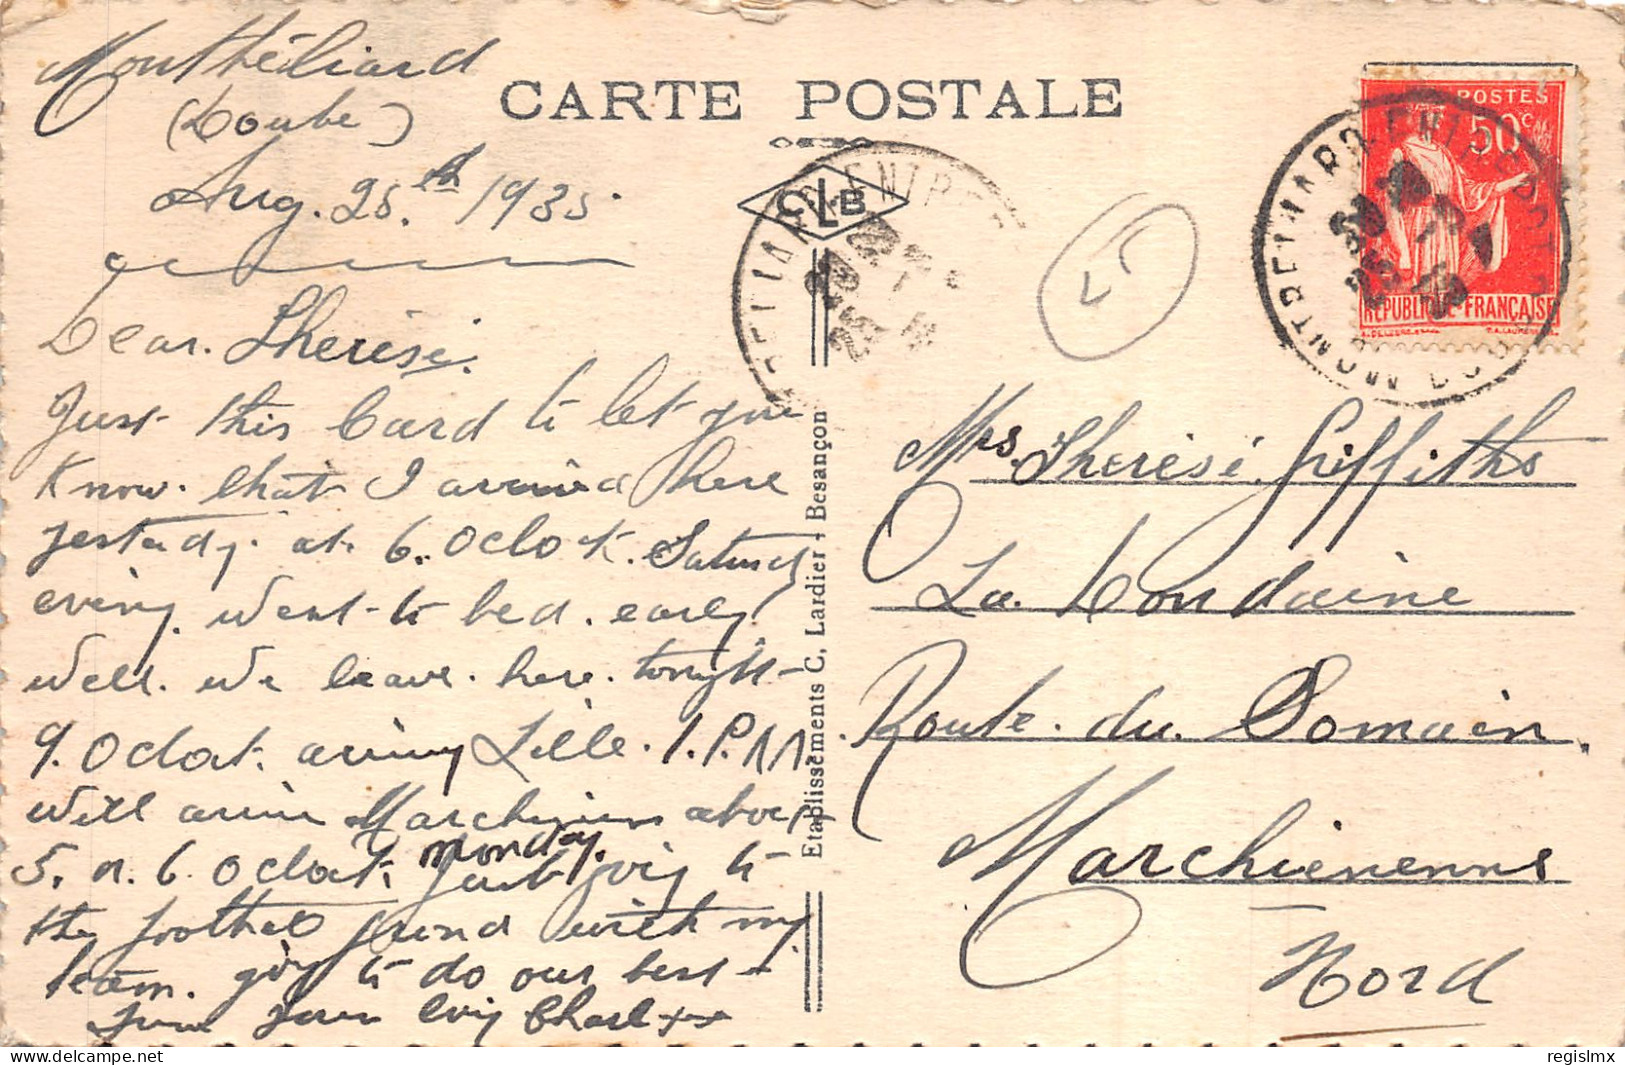 CARTE POSTALE
Montbéliard
(Doube)
Aug. 25.th 1935
Dear. Thérèsé.
Just this Card to let you
Know. that I arrived here
yesterdy. at. 6. Oclock. Saturdy
evening. went to bed. early.
Well. We leave. here. tonight
9. Oclock. arriving Lille. 1. P.M.
will arrive Marchiennes about
5. or. 6. Oclock. monday.
Just going to
the football ground with my
team. going to do our best
from your loving Charl xx
CLB
Etablissements C. Lardier - Besançon
POSTES
50c
REPUBLIQUE FRANÇAISE
MONTBELIARD-ENTREPOT
25
Mrs. Thérèsé. Griffiths
La. Londaine
Route. du. Domain.
Marchiennes
Nord
delcampe.net
regislmx